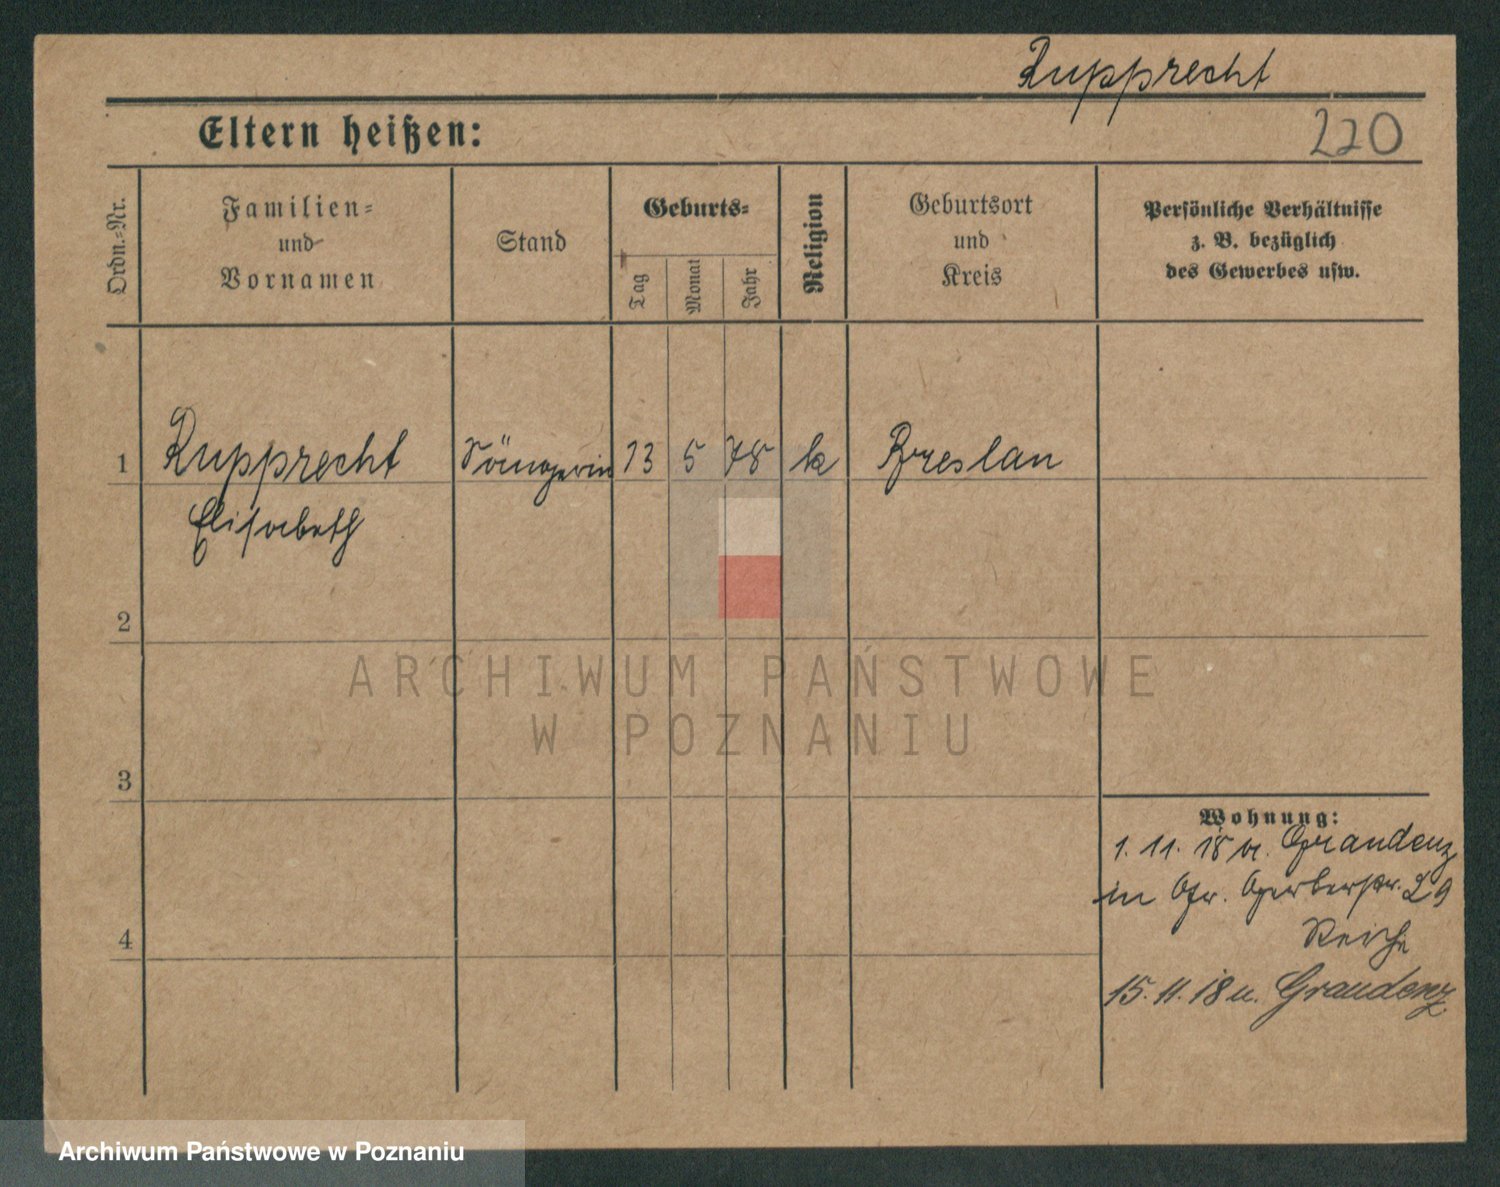 Rupprecht
Eltern heißen:
220
Ordn.-Nr.
Familien-
und
Vornamen
Stand
Geburts-
Tag
Monat
Jahr
Religion
Geburtsort
und
Kreis
Persönliche Verhältnisse
z. B. bezüglich
des Gewerbes usw.
1
Rupprecht
Sängerin
13
5
78
k
Breslau
Elisabeth
2
ARCHIWUM PAŃSTWOWE
W POZNANIU
3
Wohnung:
1. 11. 18 v. Graudenz
in Gr. Gerberstr. 29
15. 11. 18 n. Graudenz
4
Archiwum Państwowe w Poznaniu